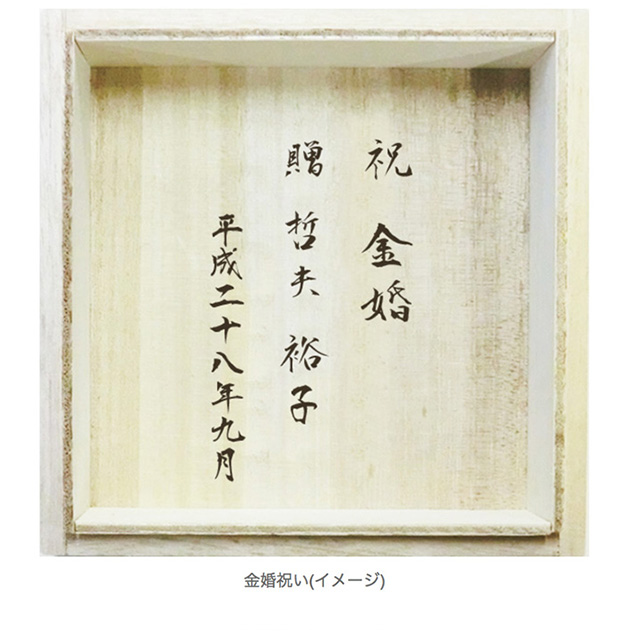 祝 金婚
贈 哲夫 裕子
平成二十八年九月
金婚祝い(イメージ)